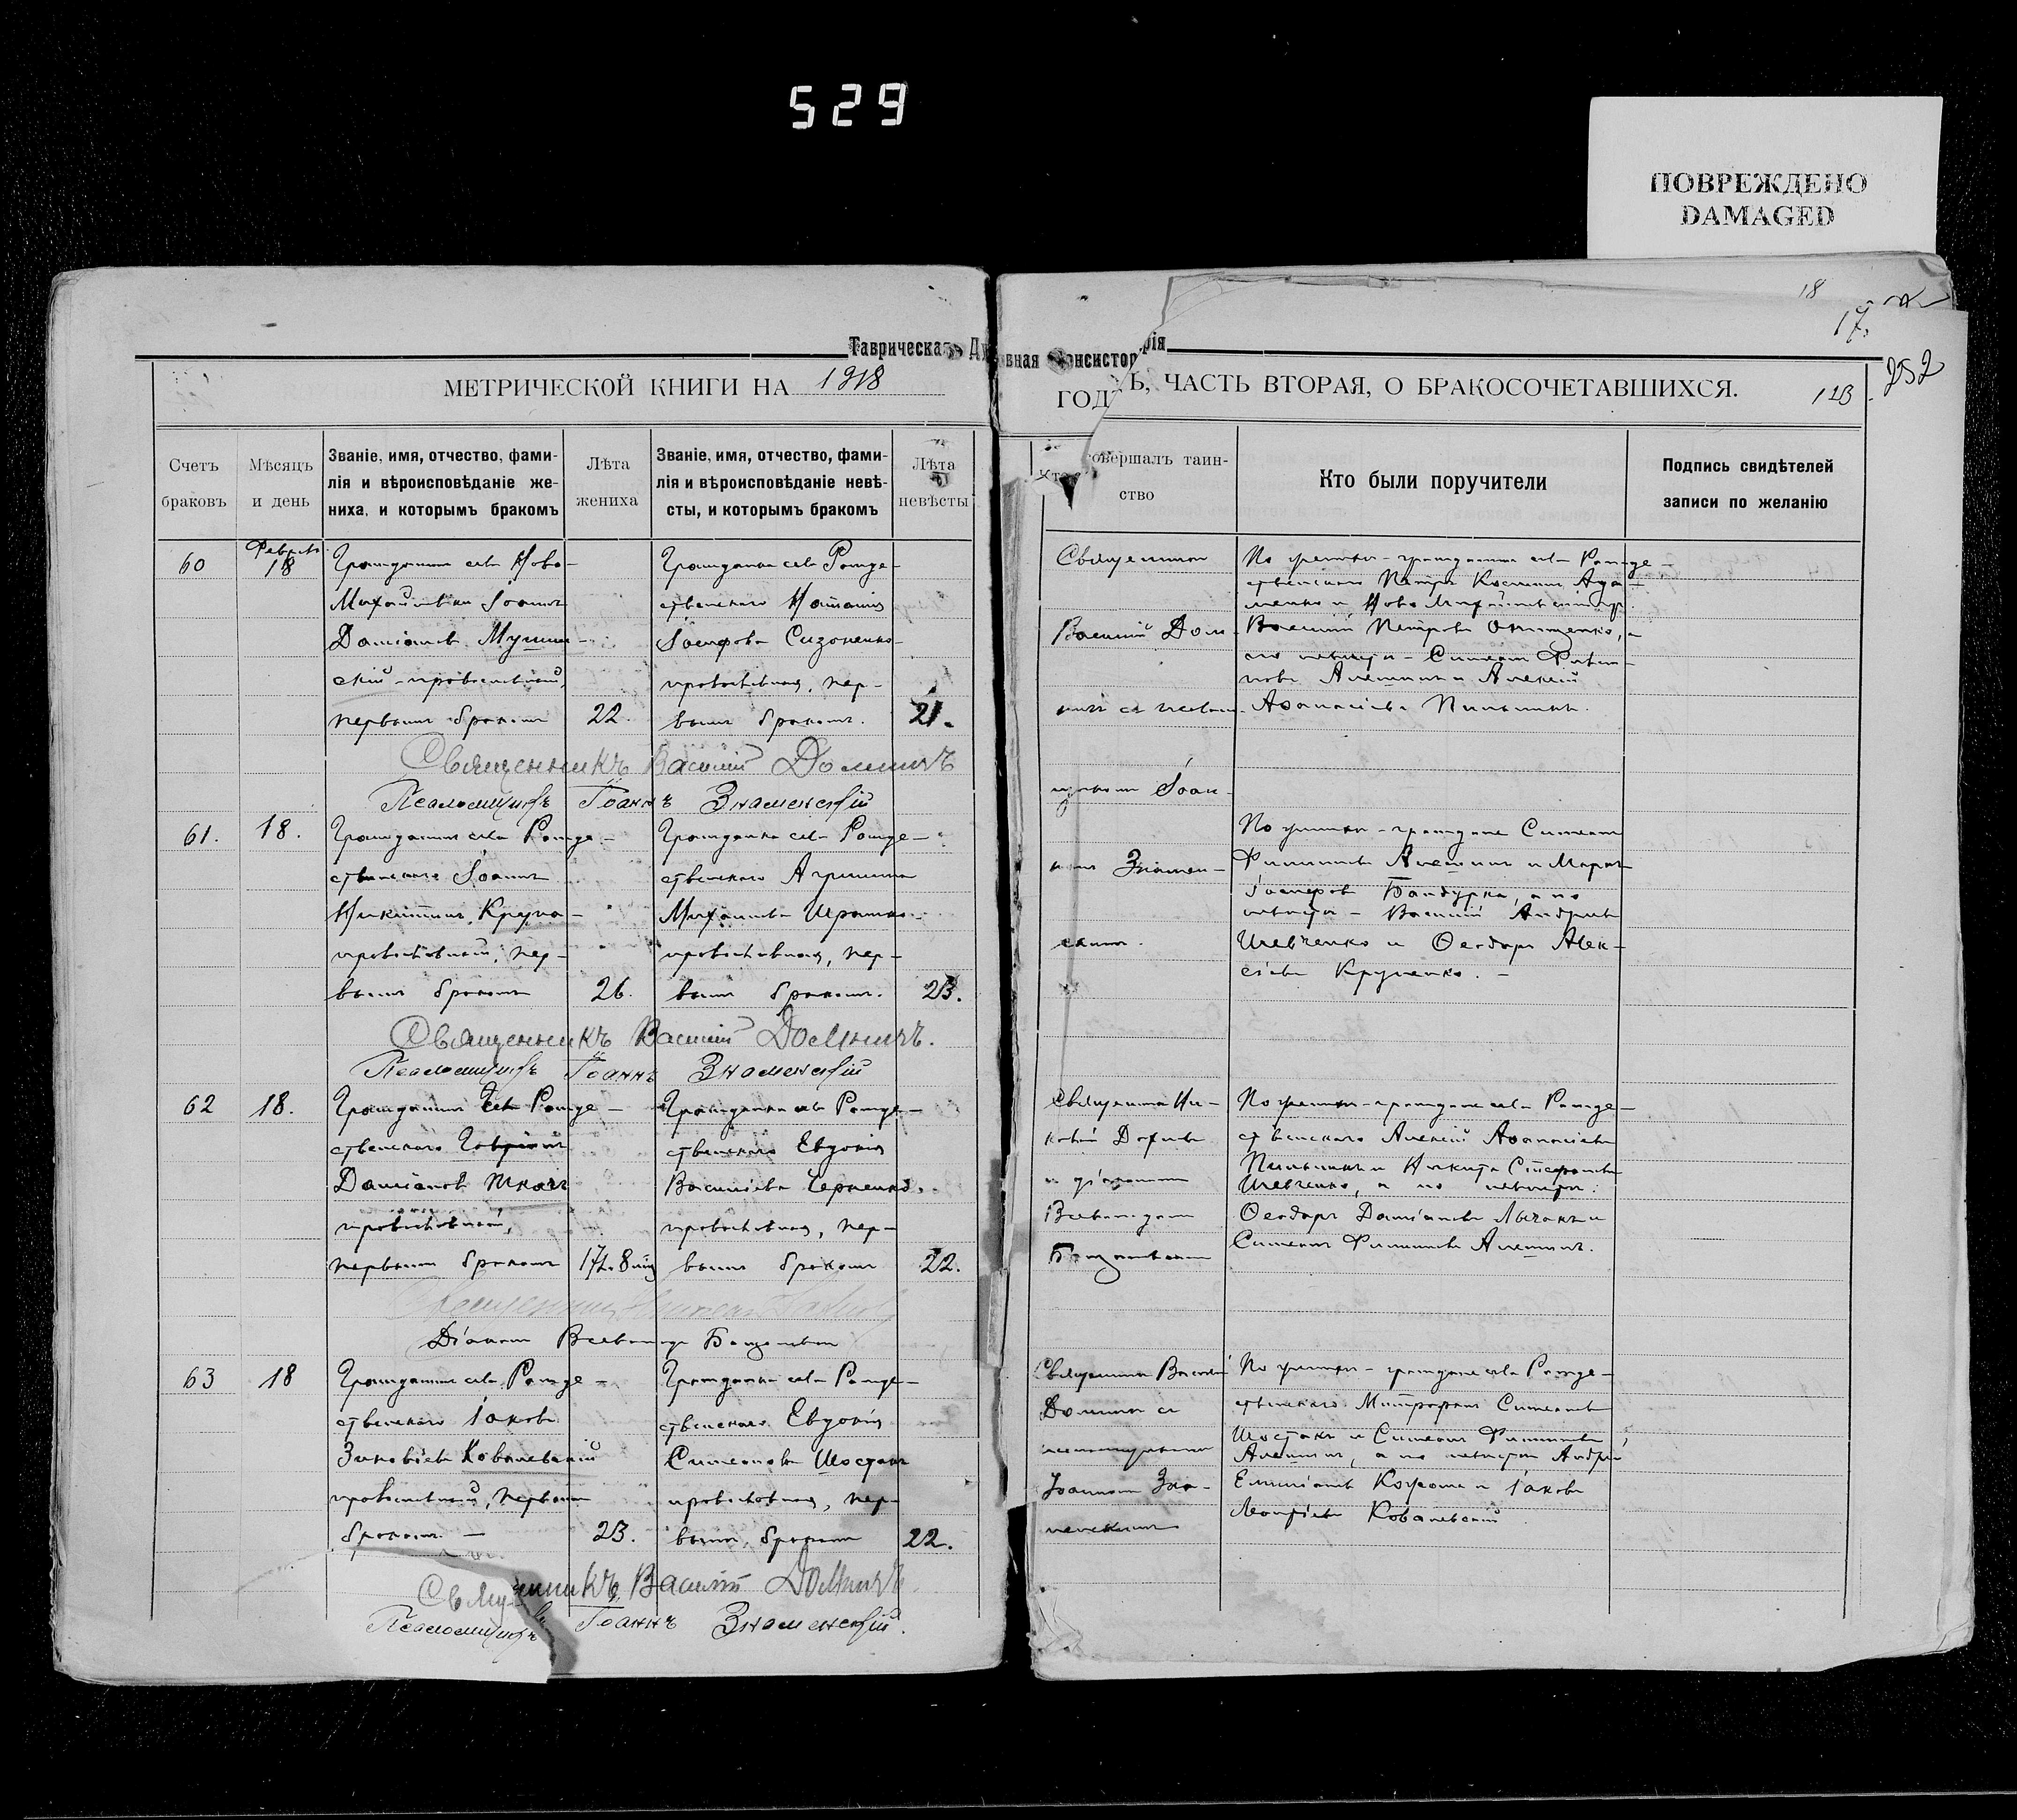 529
ПОВРЕЖДЕНО
DAMAGED
18
17.
252
123
Таврическая Духовная Консисторія
МЕТРИЧЕСКОЙ КНИГИ НА 1918
ГОДЪ, ЧАСТЬ ВТОРАЯ, О БРАКОСОЧЕТАВШИХСЯ.
Счетъ браковъ
Мѣсяцъ и день
Званіе, имя, отчество, фами-
лія и вѣроисповѣданіе же-
ниха, и которымъ бракомъ
Лѣта жениха
Званіе, имя, отчество, фами-
лія и вѣроисповѣданіе невѣ-
сты, и которымъ бракомъ
Лѣта невѣсты
Кто совершалъ таин-
ство
Кто были поручители
Подпись свидѣтелей
записи по желанію
60
18
Гражданинъ села Ново-
Михайловки Іоаннъ
Даміановъ
православный,
первымъ бракомъ
22.
Гражданка села Рожде-
ственскаго Наталія
Іосифова Сизоненко
православная, пер-
вымъ бракомъ.
21.
Священникъ
Василій Дом-
Іоан-
Знамен-
скимъ.
По женихѣ - гражданинъ села Рожде-
ственскаго Петръ
Василій Петровъ Онищенко, а
по невѣстѣ - Симеонъ Филип-
повъ Алешинъ и Алексій
Аѳанасіевъ
Священникъ Василій Домничъ
Псаломщикъ Іоаннъ Знаменскій
61.
18.
Гражданинъ села Рожде-
ственскаго Іоаннъ
Никитинъ
православный, пер-
вымъ бракомъ
26.
Гражданка села Рожде-
ственскаго Агриппина
Михаилова
православная, пер-
вымъ бракомъ.
23.
По женихѣ - граждане Симеонъ
Филипповъ Алешинъ и Маркъ
Іосифовъ Бандурка, а по
невѣстѣ - Василій Андреевъ
Шевченко и Ѳеодоръ Алек-
сіевъ Крупенко. -
Священникъ Василій Домничъ.
Псаломщикъ Іоаннъ Знаменскій
62
18.
Гражданинъ села Рожде-
ственскаго Гавріилъ
Даміановъ Ткачъ
православный,
первымъ бракомъ
17 л. 8 мѣс
Гражданка села Рожде-
ственскаго Евдокія
Василіева Черненко
православная, пер-
вымъ бракомъ
22.
Священникъ Ни-
колай
и діакономъ
Всеволодомъ
По женихѣ - граждане села Рожде-
ственскаго Алексій Аѳанасіевъ
и Никита Стефановъ
Шевченко, а по невѣстѣ:
Ѳеодоръ Даміановъ Лычакъ и
Симеонъ Филипповъ Алешинъ.
Діаконъ Всеволодъ
63
18
Гражданинъ села Рожде-
ственскаго Іаковъ
Зиновіевъ Ковалевскій
православный, первымъ
бракомъ. -
23.
Гражданка села Рожде-
ственскаго Евдокія
Симеонова Шостакъ
православная, пер-
вымъ бракомъ
22.
Священникъ Василій
Домничъ съ
псаломщикомъ
Іоанномъ Зна-
менскимъ
По женихѣ - граждане села Рожде-
ственскаго Митрофанъ Симеоновъ
Шостакъ и Симеонъ Филипповъ
Алешинъ, а по невѣстѣ Андрей
Емиліановъ и Іаковъ
Ковалевскій
Священникъ Василій Домничъ.
Псаломщикъ Іоаннъ Знаменскій.